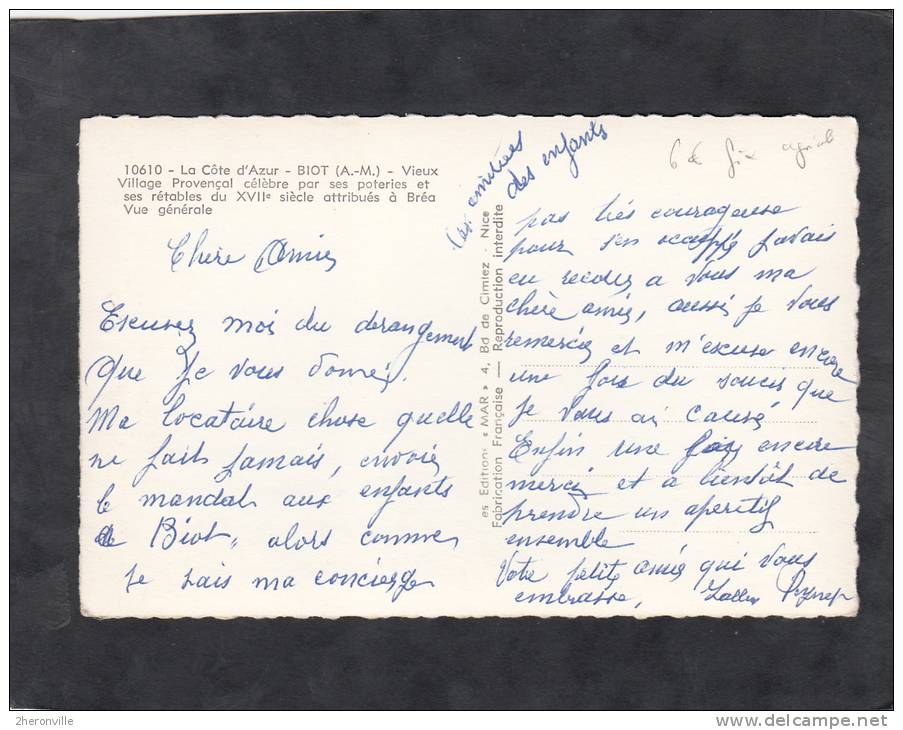 10610 - La Côte d'Azur - BIOT (A.-M.) - Vieux
Village Provençal célèbre par ses poteries et
ses rétables du XVIIe siècle attribués à Bréa
Vue générale
Chère Amie
Excusez moi du derangement
que je vous donne.
Ma locataire chose quelle
ne fait jamais, envoie
le mandat aux enfants
de Biot, alors comme
je sais ma concierge
pas très courageuse
pour s'en occuppé j'avais
eu recours a vous ma
chère amie, aussi je vous
remercie et m'excuse encore
une fois du soucis que
je vous ai causé
Enfin une fois encore
merci et a bientôt de
prendre un aperitif
ensemble
Votre petite amie qui vous
embrasse,
des enfants
es Editions « MAR » 4, Bd de Cimiez - Nice
Fabrication Française — Reproduction interdite
6
2heronville
www.delcampe.net